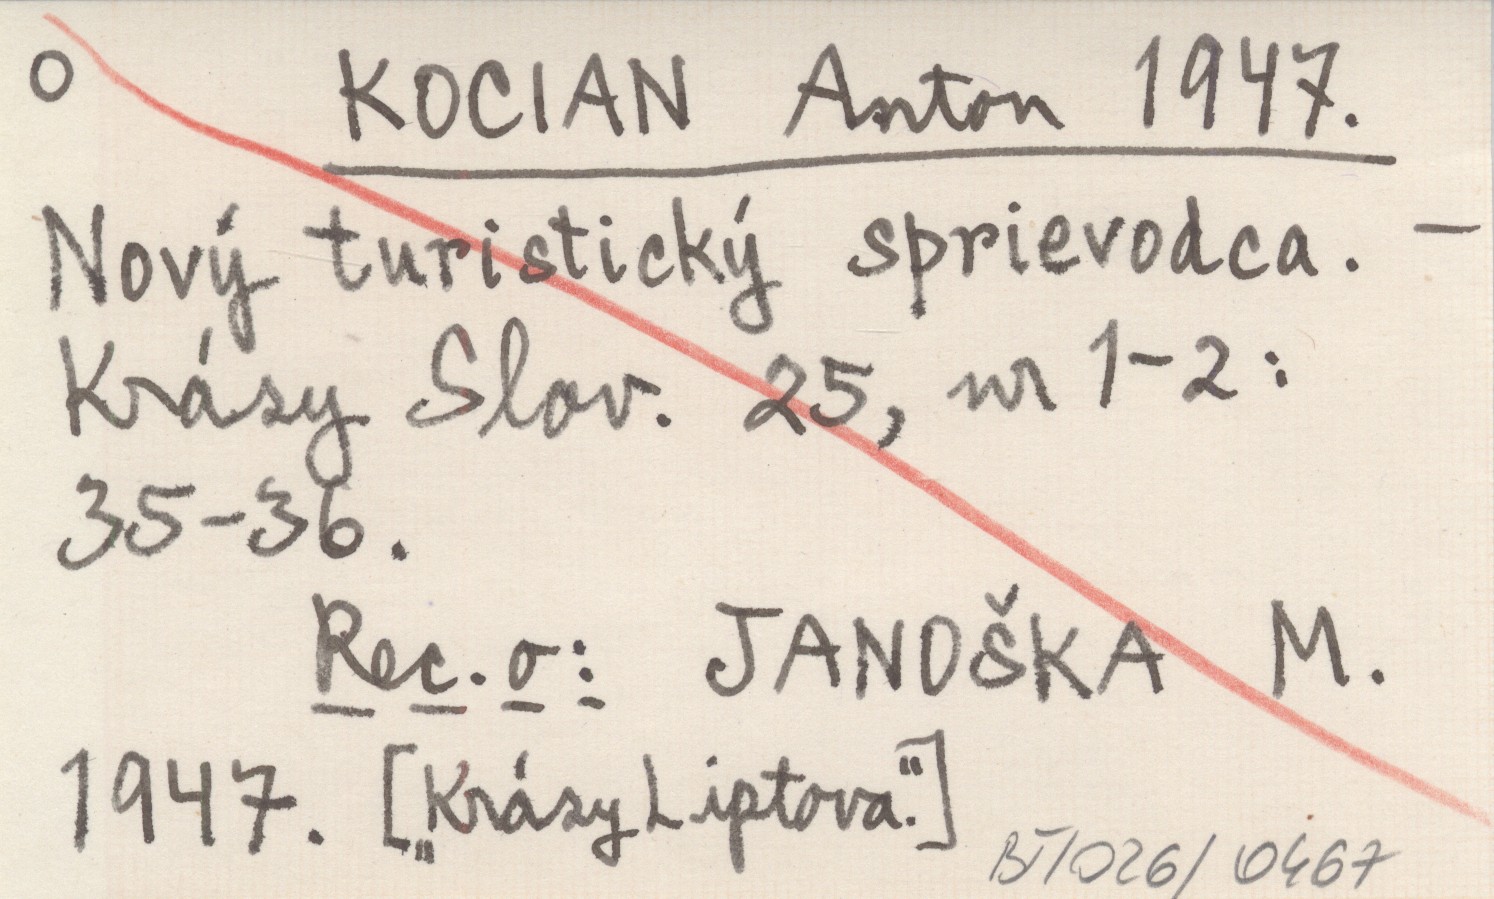 O KOCIAN Anton 1947.
Nový turistický sprievodca. –
Krásy Slov. 25, nr 1-2:
35-36.
Rec. o: JANOŠKA M.
1947. [„Krásy Liptova.“]
BT/026/0467